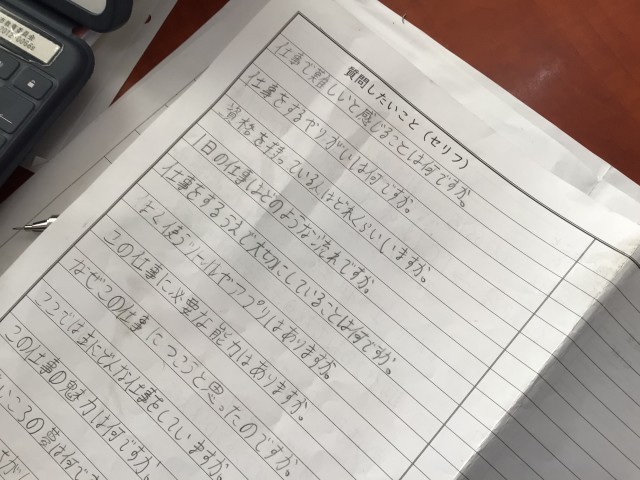 質問したいこと（セリフ）
仕事で難しいと感じることは何ですか。
仕事をするやりがいは何ですか。
資格を持っている人はどれくらいいますか。
1日の仕事はどのような流れですか。
仕事をするうえで大切にしていることは何ですか。
よく使うツールやアプリはありますか。
この仕事に必要な能力はありますか。
なぜこの仕事につこうと思ったのですか。
ここでは主にどんな仕事をしていますか。
この仕事の魅力は何ですか。